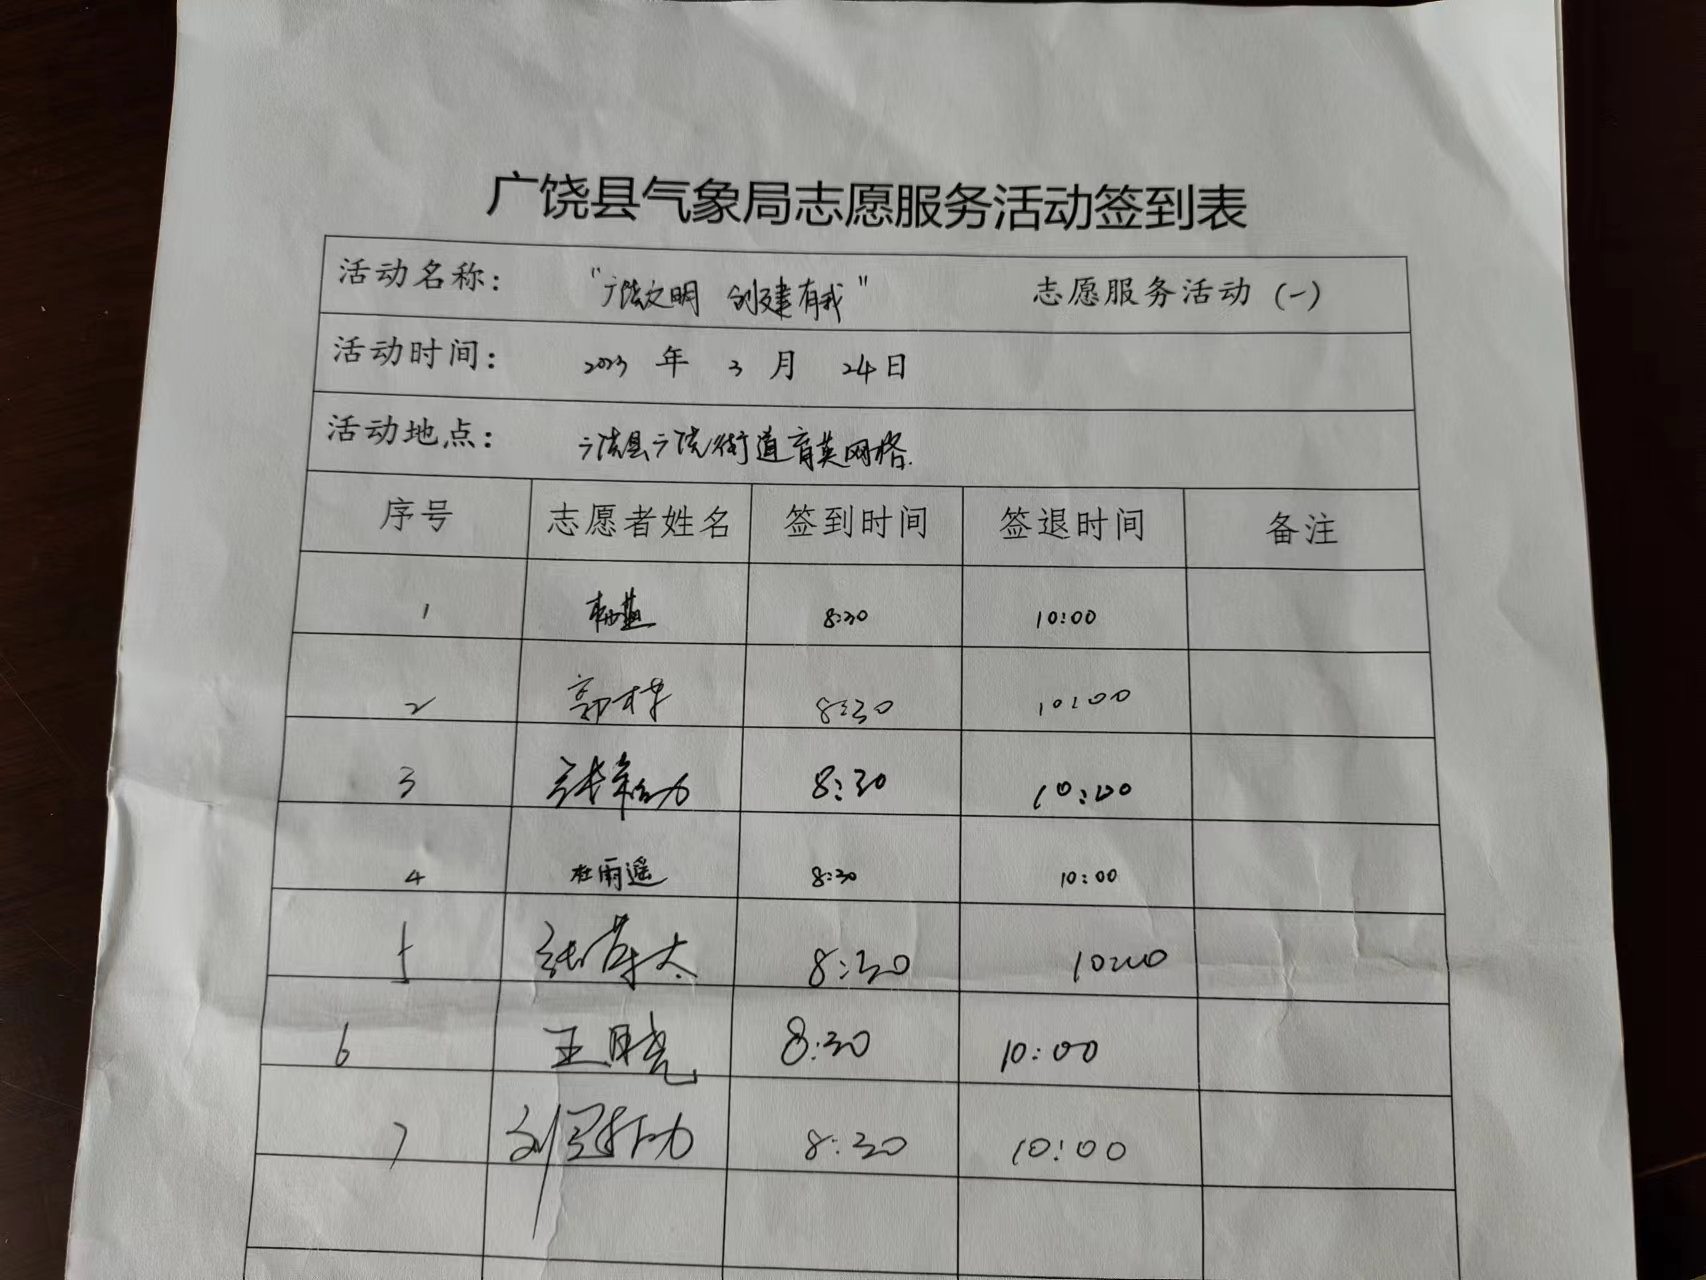 广饶县气象局志愿服务活动签到表
活动名称： "广饶文明 创建有我" 志愿服务活动（一）
活动时间： 2023 年 3 月 24日
活动地点： 广饶县广饶街道育英网格.
序号 志愿者姓名 签到时间 签退时间 备注
1 8:30 10:00
2 郭梓 8:30 10:00
3 张 8:30 10:00
4 杜雨遥 8:30 10:00
5 张 8:30 10:00
6 王晓 8:30 10:00
7 刘 8:30 10:00